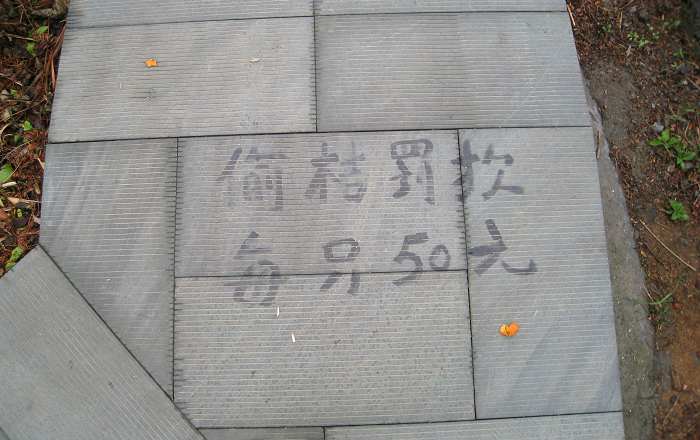 偷桔罚款
每只50元